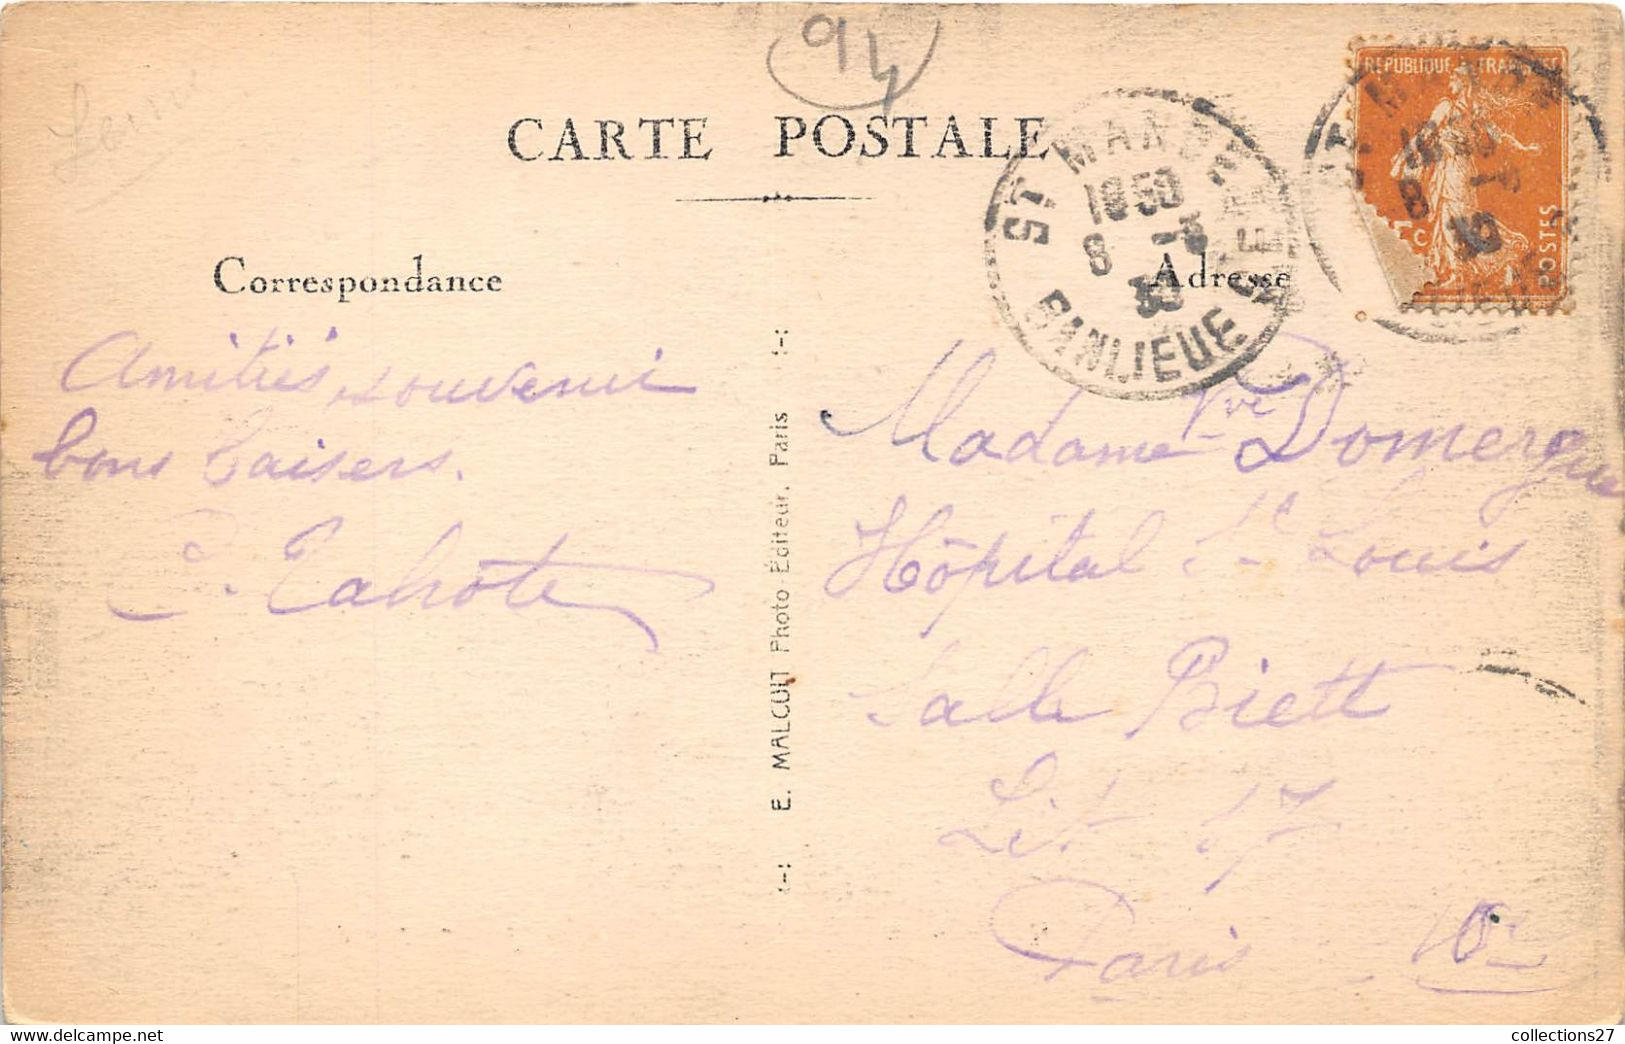 94
CARTE POSTALE
ST MANDE
18 50
8 -3
30
BANLIEUE
REPUBLIQUE FRANÇAISE
5c
POSTES
Correspondance
Adresse
Amitiés, souvenir
bons baisers.
E. MALCUIT Photo-Éditeur, Paris
Madame Vve Domergue
Hôpital St Louis
Salle Biett
Lit 17
Paris 10e
collections27